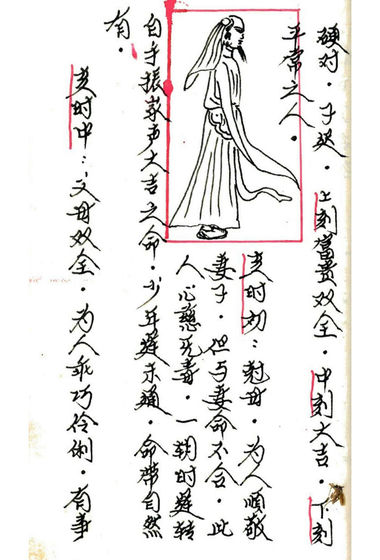 硬对，子迟，上刻富贵双全，中刻大吉，下刻
平常之人。
亥时初：尅母，为人顺敬
妻子，但与妻命不合，此
人心慈无毒，一朝时運转
白手振家声大吉之命，少年運未通，命带自然
有。
亥时中：父母双全，为人乖巧伶俐，有事